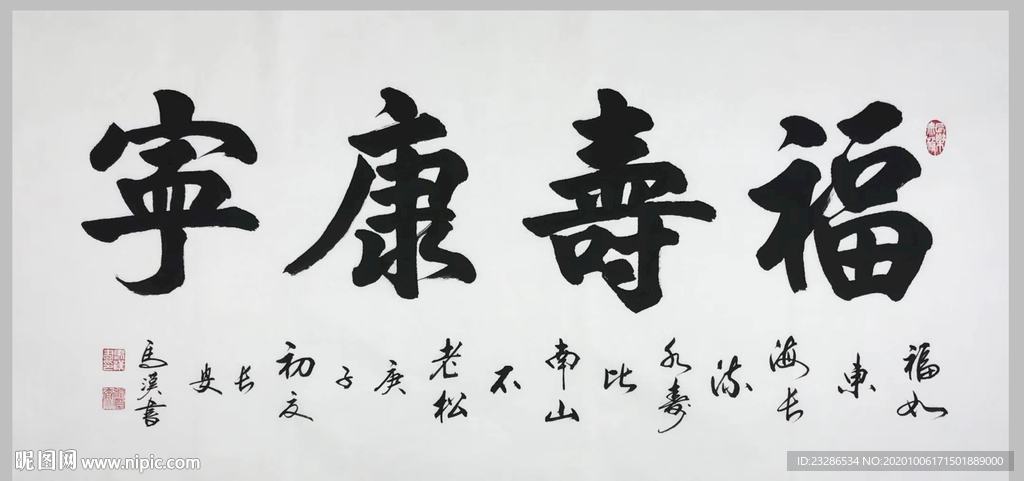 福壽康寧
福如東海长流水壽比南山不老松庚子初夏长安
馬 書
昵图网 www.nipic.com
ID:23286534 NO:20201006171501889000